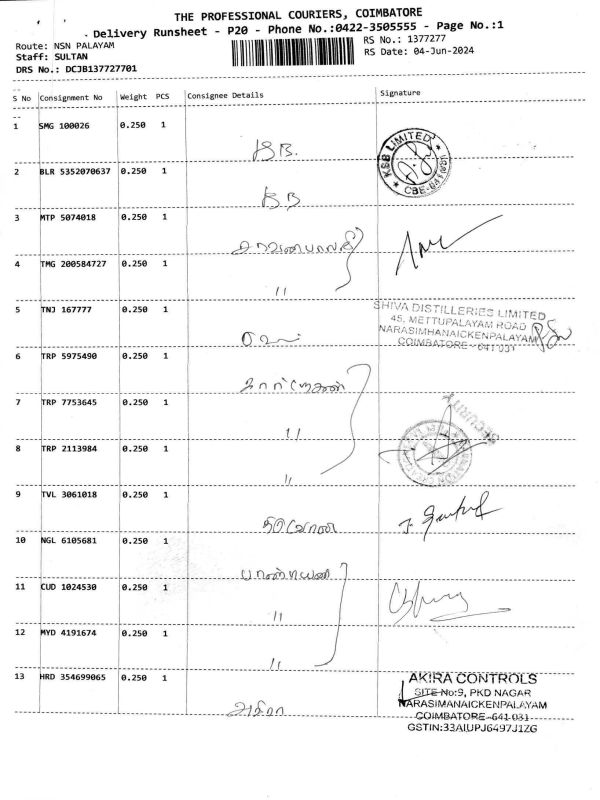 THE PROFESSIONAL COURIERS, COIMBATORE
Delivery Runsheet - P20 - Phone No.:0422-3505555 - Page No.:1
Route: NSN PALAYAM
RS No.: 1377277
Staff: SULTAN
RS Date: 04-Jun-2024
DRS No.: DCJB137727701
S No Consignment No Weight PCS Consignee Details Signature
1 SMG 100026 0.250 1
KSB LIMITED
2 BLR 5352070637 0.250 1
3 MTP 5074018 0.250 1
4 TMG 200584727 0.250 1
"
5 TNJ 167777 0.250 1
SHIVA DISTILLERIES LIMITED
45, METTUPALAYAM ROAD
NARASIMHANAICKENPALAYAM
COIMBATORE - 641 031
6 TRP 5975490 0.250 1
7 TRP 7753645 0.250 1
"
SECURITY
8 TRP 2113984 0.250 1
"
9 TVL 3061018 0.250 1
10 NGL 6105681 0.250 1
11 CUD 1024530 0.250 1
"
12 MYD 4191674 0.250 1
"
13 HRD 354699065 0.250 1
அகிரா
AKIRA CONTROLS
SITE No:9, PKD NAGAR
NARASIMANAICKENPALAYAM
COIMBATORE-641 031
GSTIN:33AIUPJ6497J1ZG